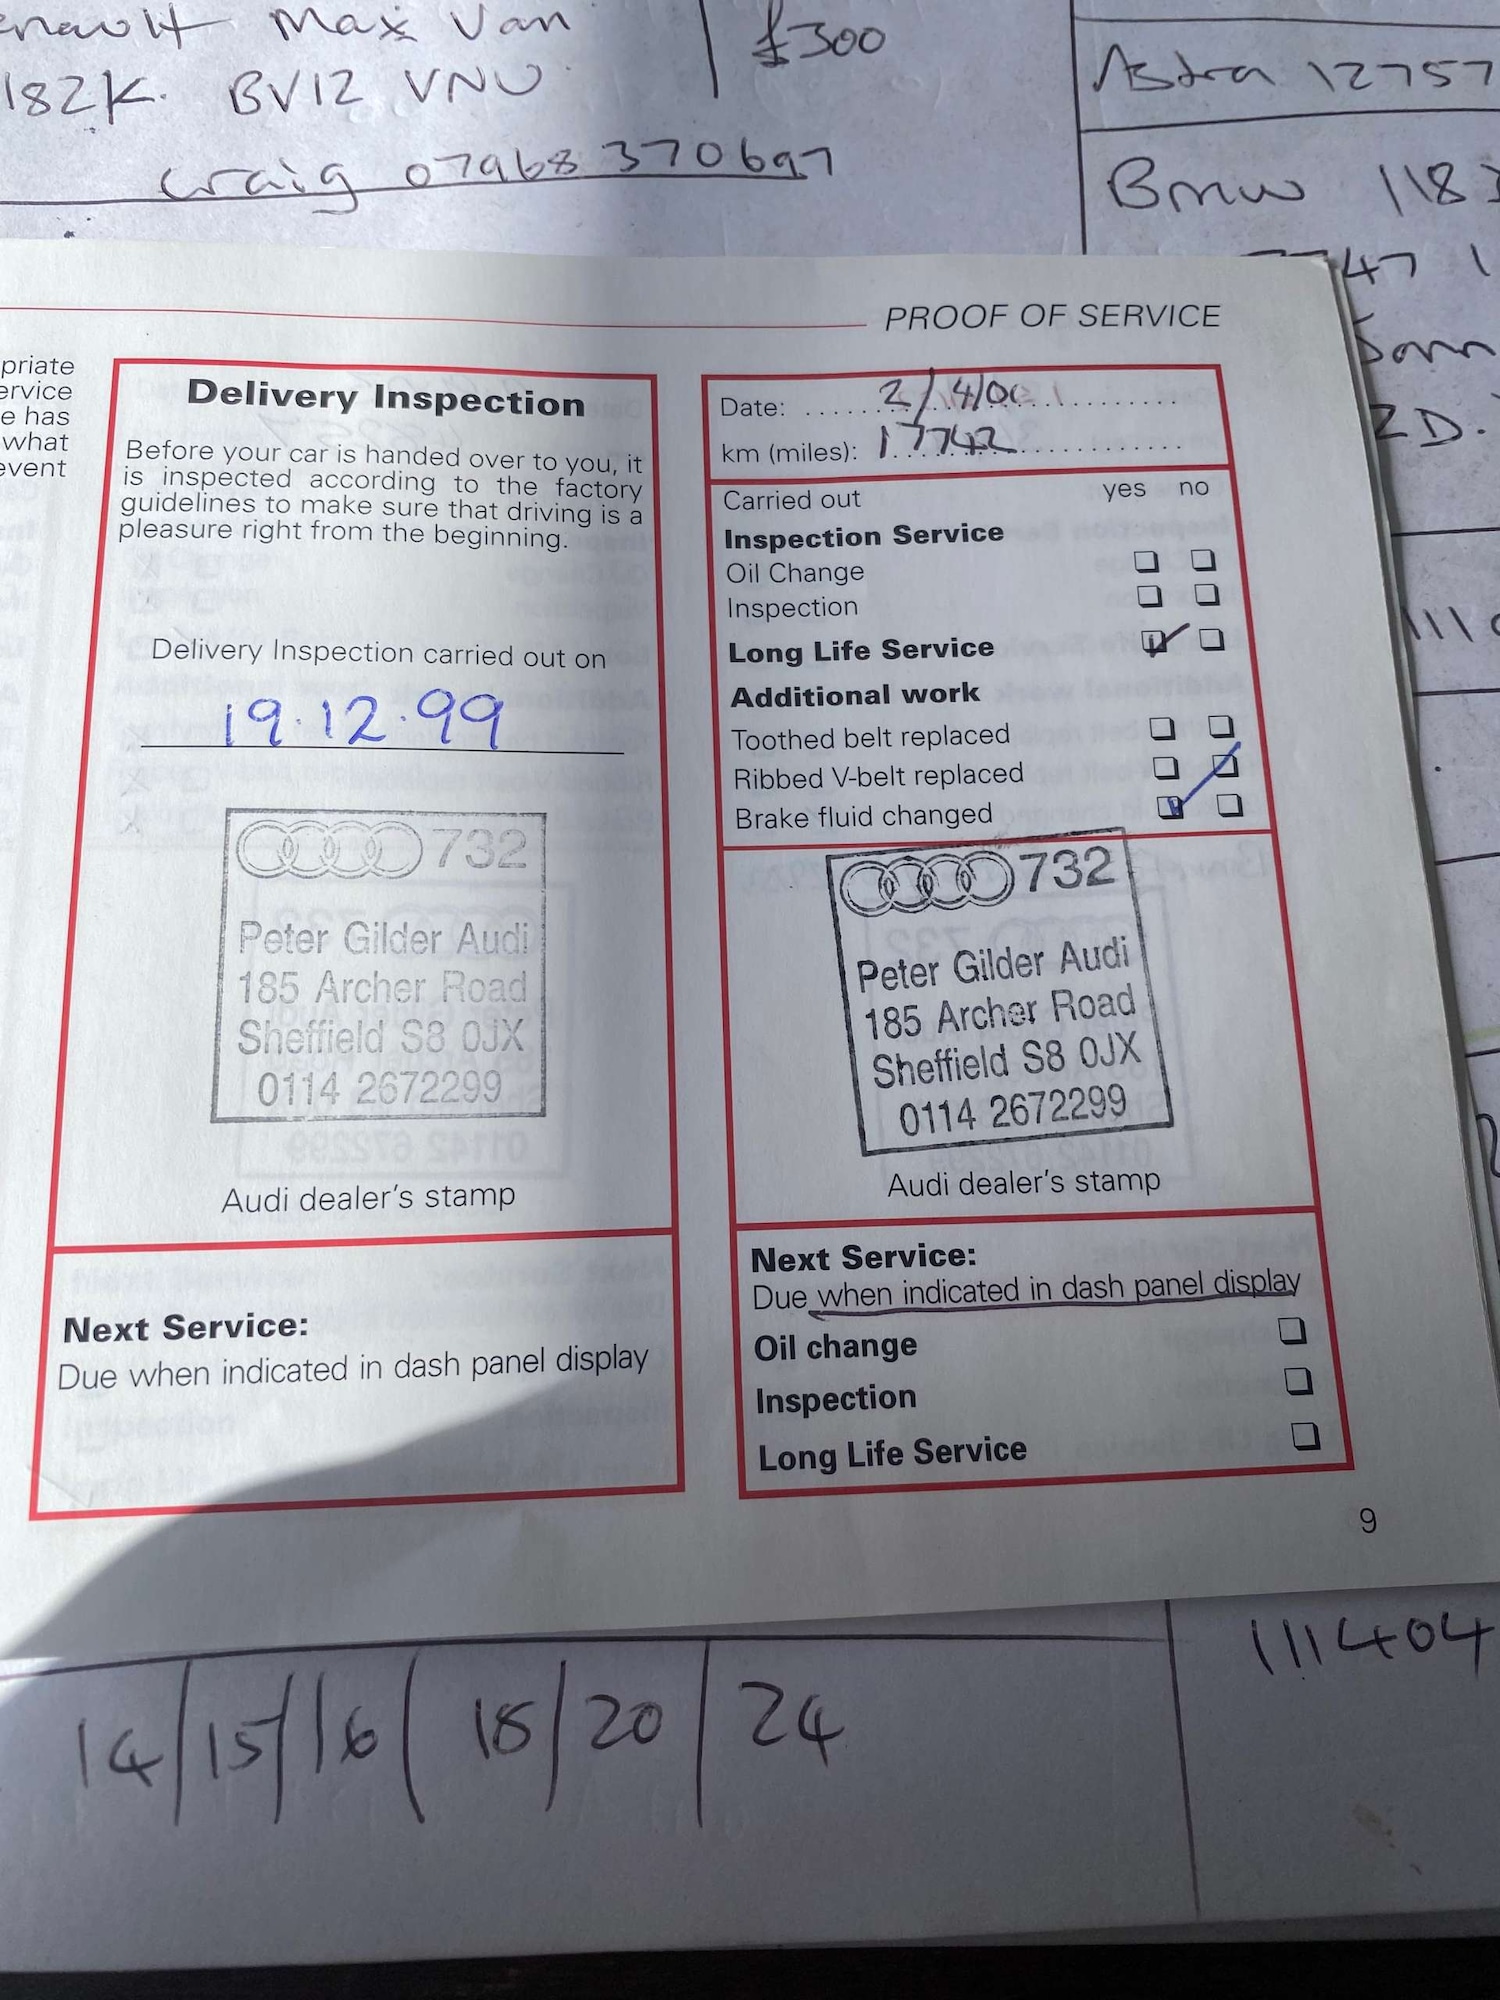 Max Van
£300
182K. BV12 VNU
Craig 07968 370697
Astra 12757
Bmw 118
PROOF OF SERVICE
priate
ervice
e has
what
event
Delivery Inspection
Before your car is handed over to you, it
is inspected according to the factory
guidelines to make sure that driving is a
pleasure right from the beginning.
Delivery Inspection carried out on
19.12.99
732
Peter Gilder Audi
185 Archer Road
Sheffield S8 0JX
0114 2672299
Audi dealer's stamp
Next Service:
Due when indicated in dash panel display
Date: 2/4/00
km (miles): 17742
Carried out yes no
Inspection Service
Oil Change
Inspection
Long Life Service
Additional work
Toothed belt replaced
Ribbed V-belt replaced
Brake fluid changed
732
Peter Gilder Audi
185 Archer Road
Sheffield S8 0JX
0114 2672299
Audi dealer's stamp
Next Service:
Due when indicated in dash panel display
Oil change
Inspection
Long Life Service
9
111404
14/15/16/18/20/24